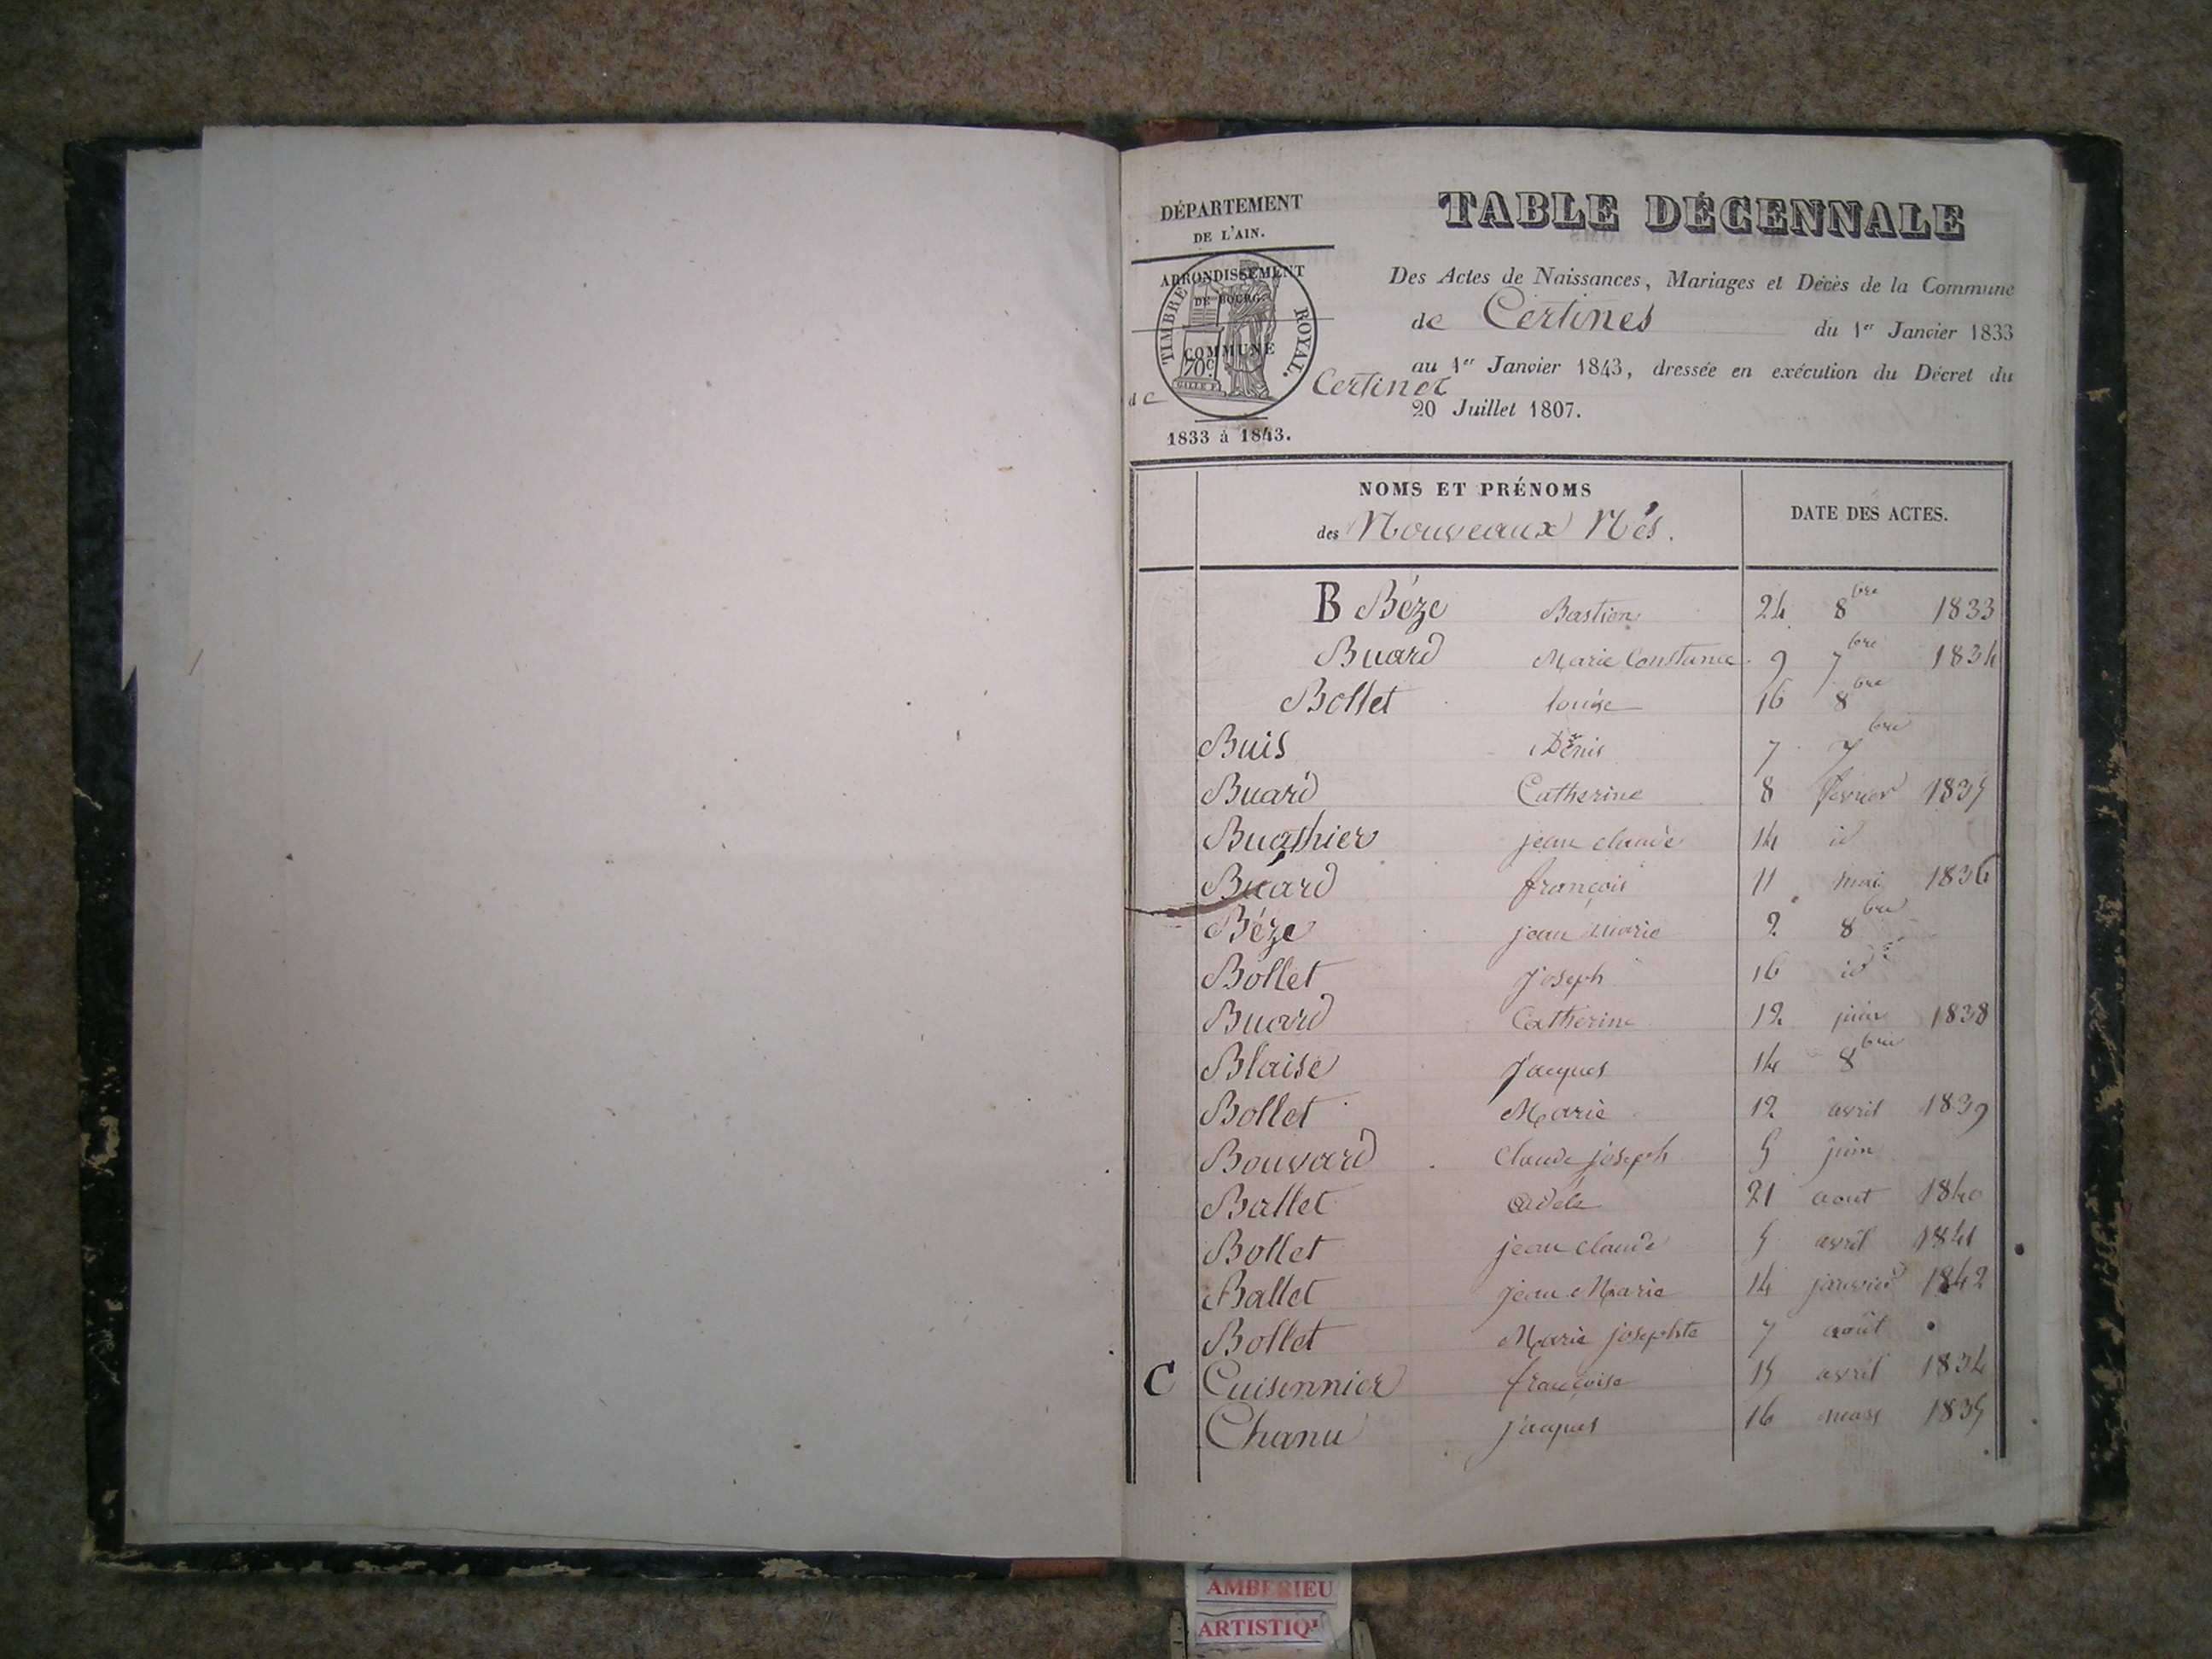 DÉPARTEMENT
DE L'AIN.
ARRONDISSEMENT
DE BOURG.
TIMBRE ROYAL.
COMMUNE
70c
de Certines
1833 à 1843.
TABLE DÉCENNALE
Des Actes de Naissances, Mariages et Décès de la Commune
de Certines du 1er Janvier 1833
au 1er Janvier 1843, dressée en exécution du Décret du
20 Juillet 1807.
NOMS ET PRÉNOMS
des Nouveaux Nés.
DATE DES ACTES.
B Béze Bastien 24 8bre 1833
Buard Marie Constance 9 7bre 1834
Bollet louise 16 8bre
Buis Denis 7 7bre
Buard Catherine 8 fevrier 1835
Buathier jean claude 14 id
Buard françois 11 mai 1836
Béze jean marie 2 8bre
Bollet joseph 16 id
Buard Catherine 12 juin 1838
Blaise jacques 14 8bre
Bollet Marie 12 avril 1839
Bouvard Claude joseph 5 juin
Ballet adéle 21 aout 1840
Bollet jean claude 5 avril 1841
Ballet jean Marie 14 janvier 1842
Bollet Marie josephte 7 août
C Cuisennier françoise 15 avril 1834
Chanu jacques 16 mars 1835
AMBERIEU
ARTISTIQ